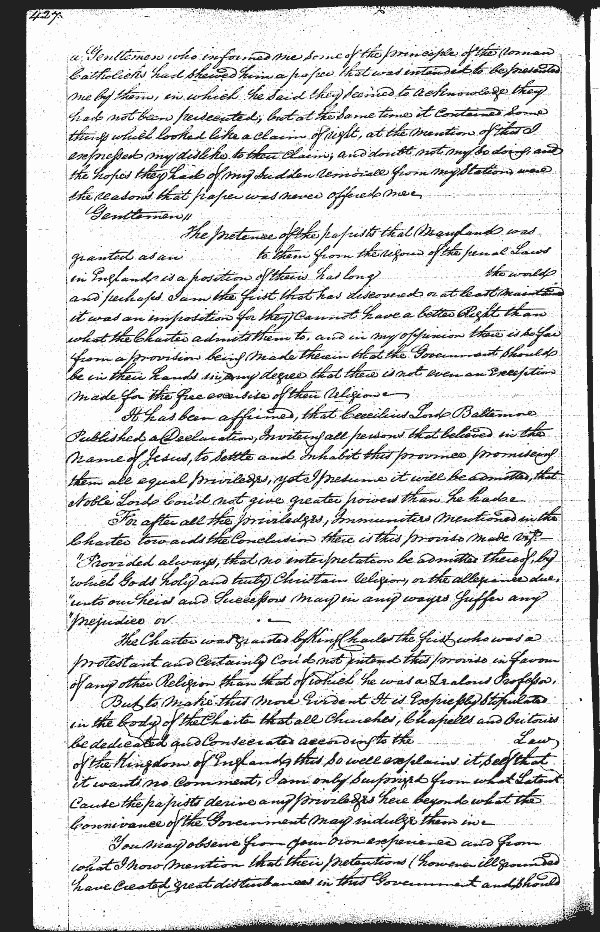 427.
a Gentlemen who informed me some of the principle of the Roman
Catholicks had shewed him a paper that was intended to be presented
me by them, in which he said they seemed to acknowledge they
had not been persecuted, but at the same time it contained some
things which looked like a claim of right, at the mention of this I
expressed my dislike to their Claim, and doubt not my so doing and
the hopes they had of my sudden removall from my Station were
the reasons that paper was never offered me
Gentlemen
The pretence of the papists that Maryland was
granted as an to them from the rigour of the penal Laws
in England is a position of theirs has long the world
and perhaps I am the first that has discovered or at least maintained
it was an imposition for they Cannot have a better Right than
what the Charter admits them to, and in my oppinion there is so far
from a provision being made therein that the Government should
be in their hands in any degree that there is not even an Exception
made for the free exercise of their religion
It has been affirmed, that Cecilius Lord Baltemore
Published a Declaration, Inviting all persons that believed in the
name of Jesus, to Settle and Inhabit this province promiseing
them all equal priviledges, yet I presume it will be admitted, that
Noble Lord Cou'd not give greater powers than he had
For after all the priviledges, Immunities mentioned in the
Charter towards the Conclusion there is this proviso made vizt.
"Provided always, that no interpretation be admitted thereof, by
"which Gods holy and truly Christain religion, or the allegiance due,
"unto our heirs and Successors may in any ways Suffer any
"prejudice or
The Charter was granted by King Charles the first who was a
protestant and Certainly Cou'd not intend this proviso in favour
of any other Religion than that of which he was a Zealous Professor.
But to make this more Evident It is Expressly Stipulated
in the body of the Charter that all Churches, Chapells and Oritories
be dedicated and Consecrated according to the Law
of the Kingdom of England, this so well explains it Self that
it wants no comment, I am only Surprized from what Latent
Cause the papists derive any priviledges here beyond what the
Connivance of the Government may indulge them in
You may observe from your own experience and from
what I now mention that their pretentions (however ill grounded
have Created great disturbances in this Government and should